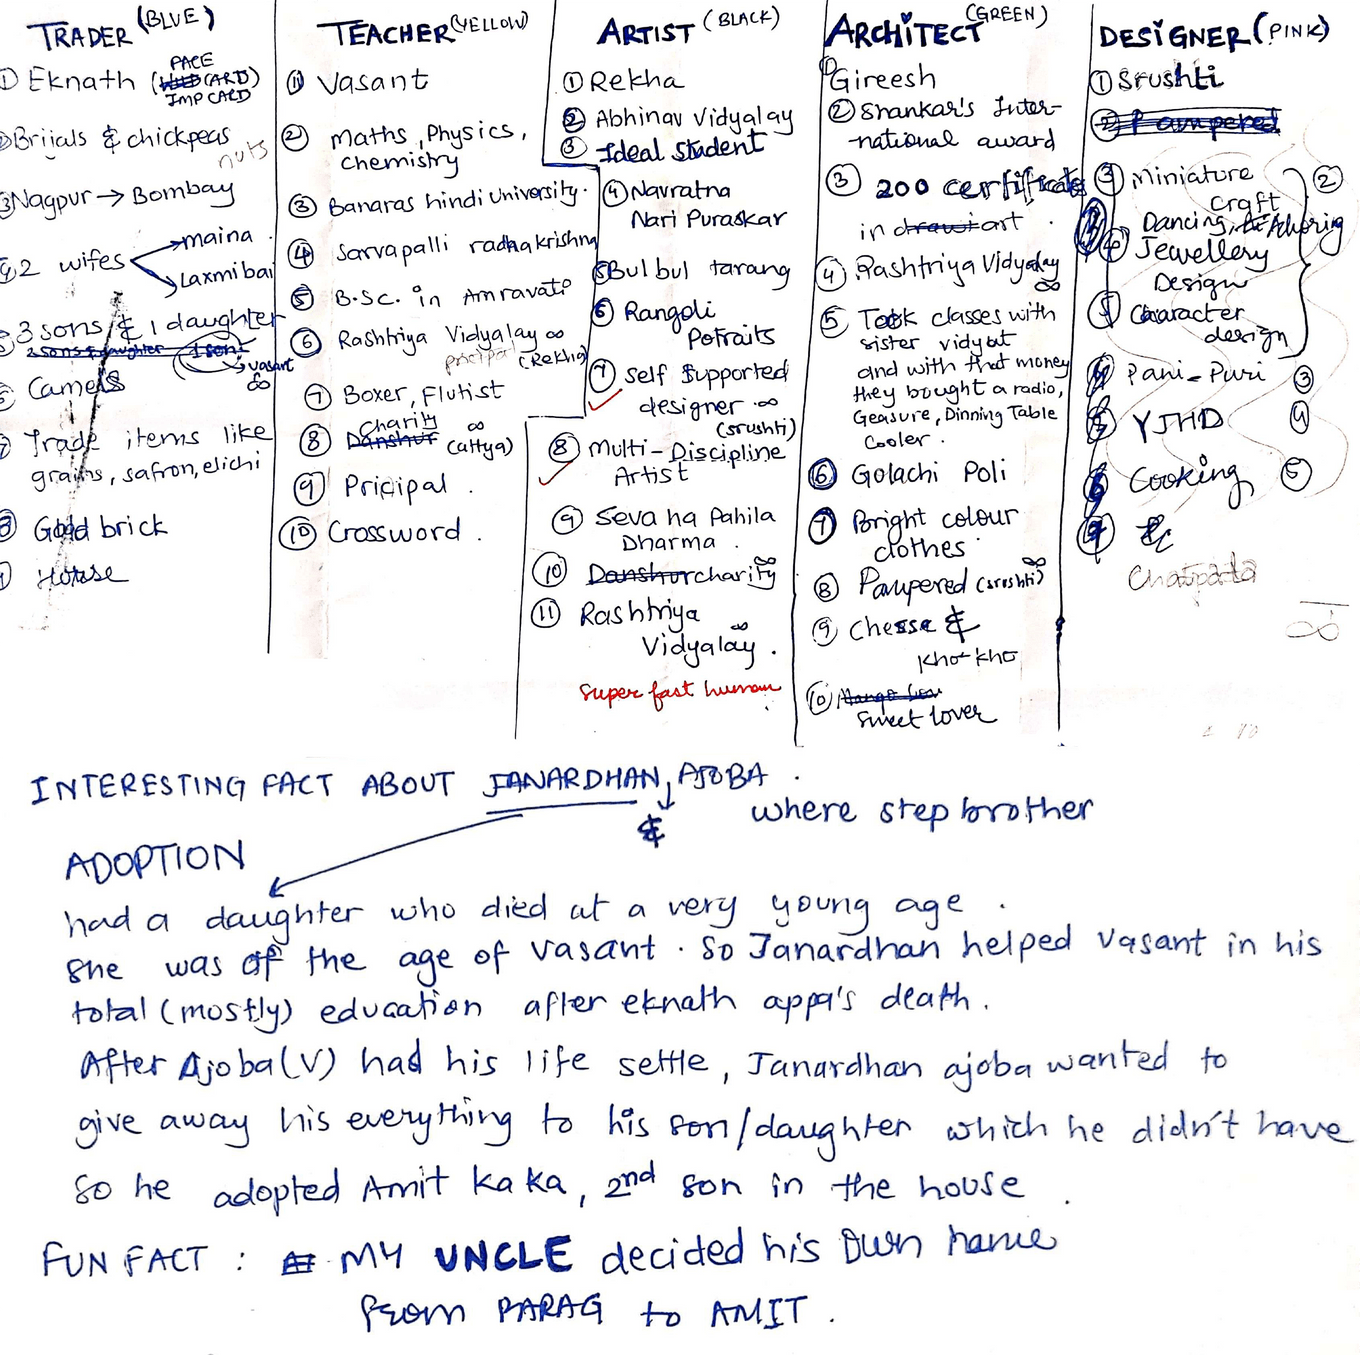 TRADER (BLUE)
① Eknath (PACE CARD)
IMP CARD
② Brijals & chickpeas
nuts
③ Nagpur → Bombay
④ 2 wifes → maina
→ Laxmibai
⑤ 3 sons & 1 daughter
2 sons & daughter 1 son
→ vasant
∞
⑥ Camels
⑦ Trade items like
grains, safron, elichi
⑧ Gold brick
⑨ House
TEACHER (YELLOW)
① Vasant
② maths, Physics,
chemistry
③ Banaras hindi university.
④ Sarvapalli radhakrishna
⑤ B.Sc. in Amravati
⑥ Rashtriya Vidyalay ∞
principal (Rekha)
⑦ Boxer, Flutist
Charity ∞
⑧ Danshur
⑨ Pricipal .
⑩ Crossword .
ARTIST (BLACK)
① Rekha
② Abhinav Vidyalay
③ Ideal student
④ Navratna
Nari Puraskar
⑤ Bulbul tarang
⑥ Rangoli
Potraits
⑦ Self Supported
designer ∞
(srushti)
⑧ Multi-Discipline
Artist
⑨ Seva ha Pahila
Dharma .
⑩ Danshur charity ∞
⑪ Rashtriya
Vidyalay ∞ .
Super fast human
ARCHITECT (GREEN)
① Gireesh
② Shankar's Inter-
national award
③ 200 certificates
in drawi art .
④ Rashtriya Vidyalay
∞
⑤ Took classes with
sister vidyut
and with that money
they bought a radio,
Geasure, Dinning Table
Cooler .
⑥ Golachi Poli
⑦ Bright colour
clothes
⑧ Pampered (srushti) ∞
⑨ Chesse &
kho-kho
⑩ Mango
Sweet lover
DESIGNER (PINK)
① Srushti
② Pampered
③ Miniature ②
Craft
Dancing,
④ Jewellery
Design
⑤ Character
design
Pani-Puri ③
YJHD ④
Cooking ⑤
Chatpata
INTERESTING FACT ABOUT JANARDHAN AJOBA .
& where step brother
ADOPTION
had a daughter who died at a very young age .
She was of the age of Vasant . So Janardhan helped Vasant in his
total (mostly) education after eknath appa's death .
After Ajoba(V) had his life settle, Janardhan ajoba wanted to
give away his everything to his son/daughter which he didn't have
So he adopted Amit kaka, 2nd son in the house .
FUN FACT : MY UNCLE decided his Own name
from PARAG to AMIT .